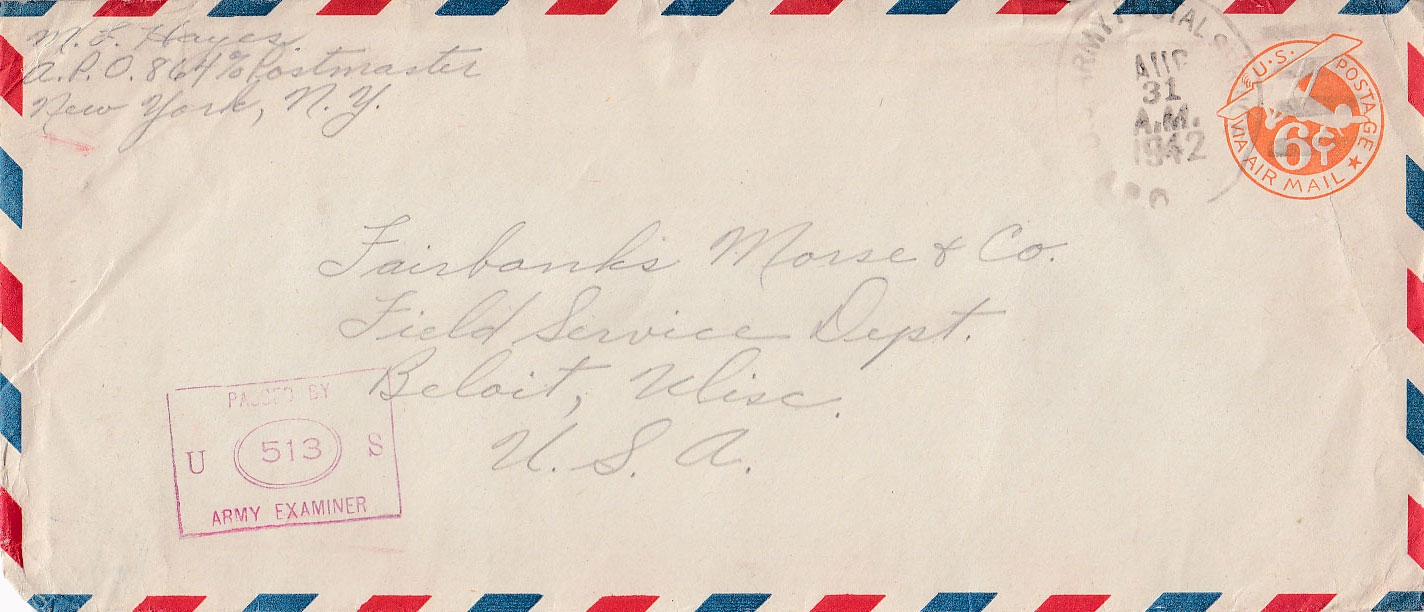 M. F. Hayes.
A.P.O. 864 % Postmaster
New York, N.Y.
ARMY POSTAL
AUG
31
A.M.
1942
A.P.O.
U.S. POSTAGE
6¢
VIA AIR MAIL
Fairbanks Morse & Co.
Field Service Dept.
Beloit, Wisc.
U. S. A.
PASSED BY
U 513 S
ARMY EXAMINER